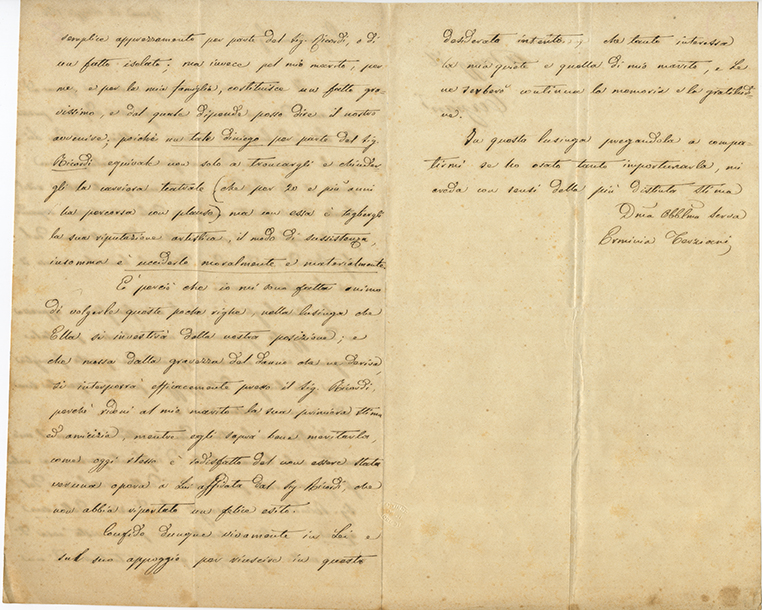 semplice apprezzamento per parte del sig. Ricordi, o di
un fatto isolato; ma invece pel mio marito, per
me, e per la mia famiglia, costituisce un fatto gra
vissimo, e dal quale dipende posso dire il nostro
avvenire; poichè un tale diniego per parte del sig.
Ricordi equivale non solo a troncargli e chiuder
gli la carriera teatrale (che per 20 e più anni
ha percorsa con plauso) ma con essa è togliergli
la sua riputazione artistica, il modo di sussistenza,
insomma è ucciderlo moralmente e materialmente.
È perciò che io mi sono fatta animo
di volgerle queste poche righe, nella lusinga che
Ella si investirà della nostra posizione; e
che mossa dalla gravezza del danno che ne deriva,
si interporrà efficacemente presso il sig. Ricordi,
perchè ridoni al mio marito la sua primiera stima
ed amicizia, mentre egli saprà bene meritarla,
come oggi stesso è sodisfatto del non essere stata
veruna opera a Lui affidata dal sig Ricordi, che
non abbia riportato un felice esito.
Confido dunque vivamente in Lei e
sul suo appoggio per riuscire in questo
desiderato intento, che tanto interessa
la mia quiete e quella di mio marito, e Le
ne serberò continua la memoria e la gratitudi
ne.
In questa lusinga pregandola a compa-
tirmi se ho osato tanto importunarla, mi
creda con sensi della più distinta stima
Dma Obblma serva
Erminia Terziani